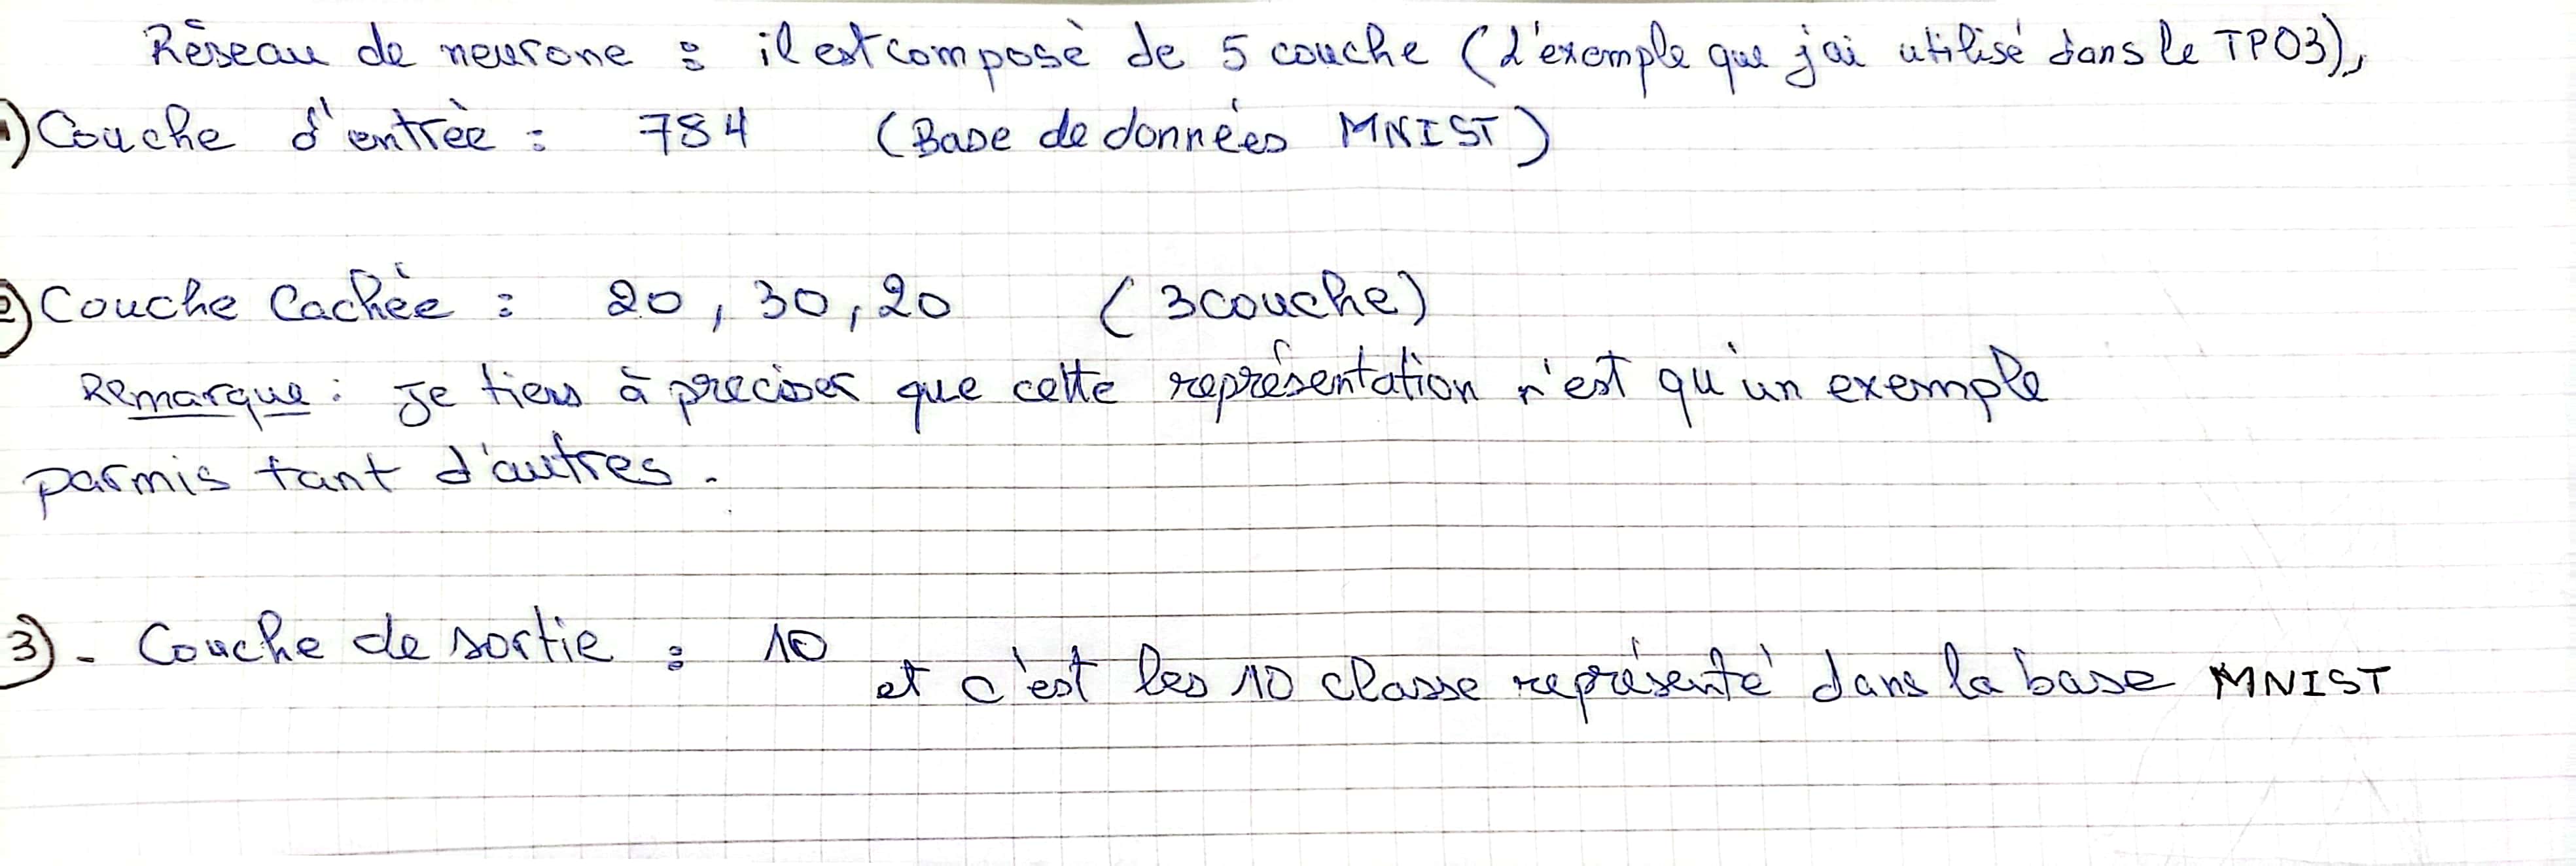 Réseau de neurone : il est composè de 5 couche (L'exemple que j'ai utilisé dans le TP03),
1) Couche d'entrèe : 784 (Base de données MNIST)
2) Couche Cachèe : 20, 30, 20 (3 couche)
Remarque : Je tiens à preciser que cette représentation n'est qu'un exemple
parmis tant d'autres.
3) - Couche de sortie : 10 et c'est les 10 classe représenté dans la base MNIST